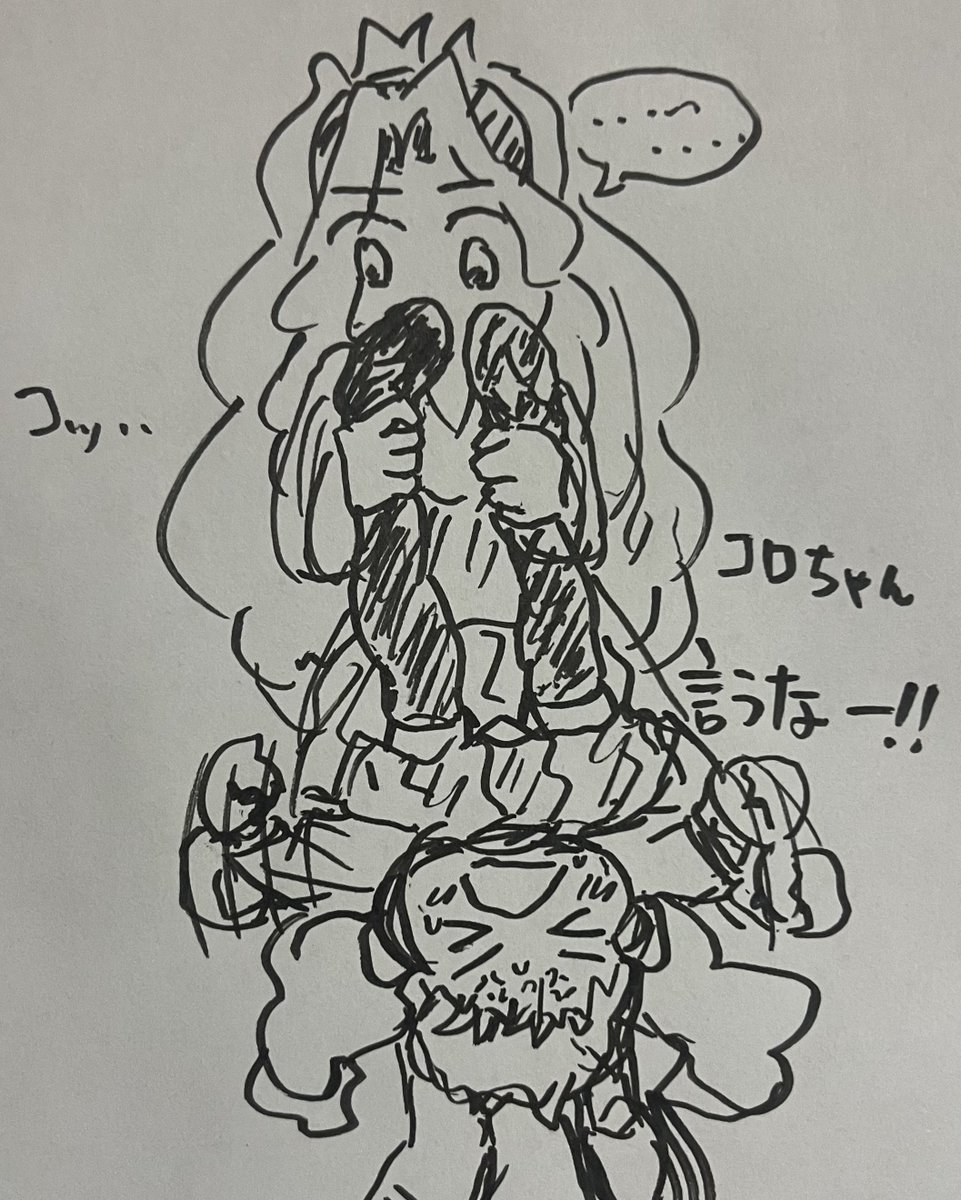 コッ‥
コロちゃん
言うなー!!